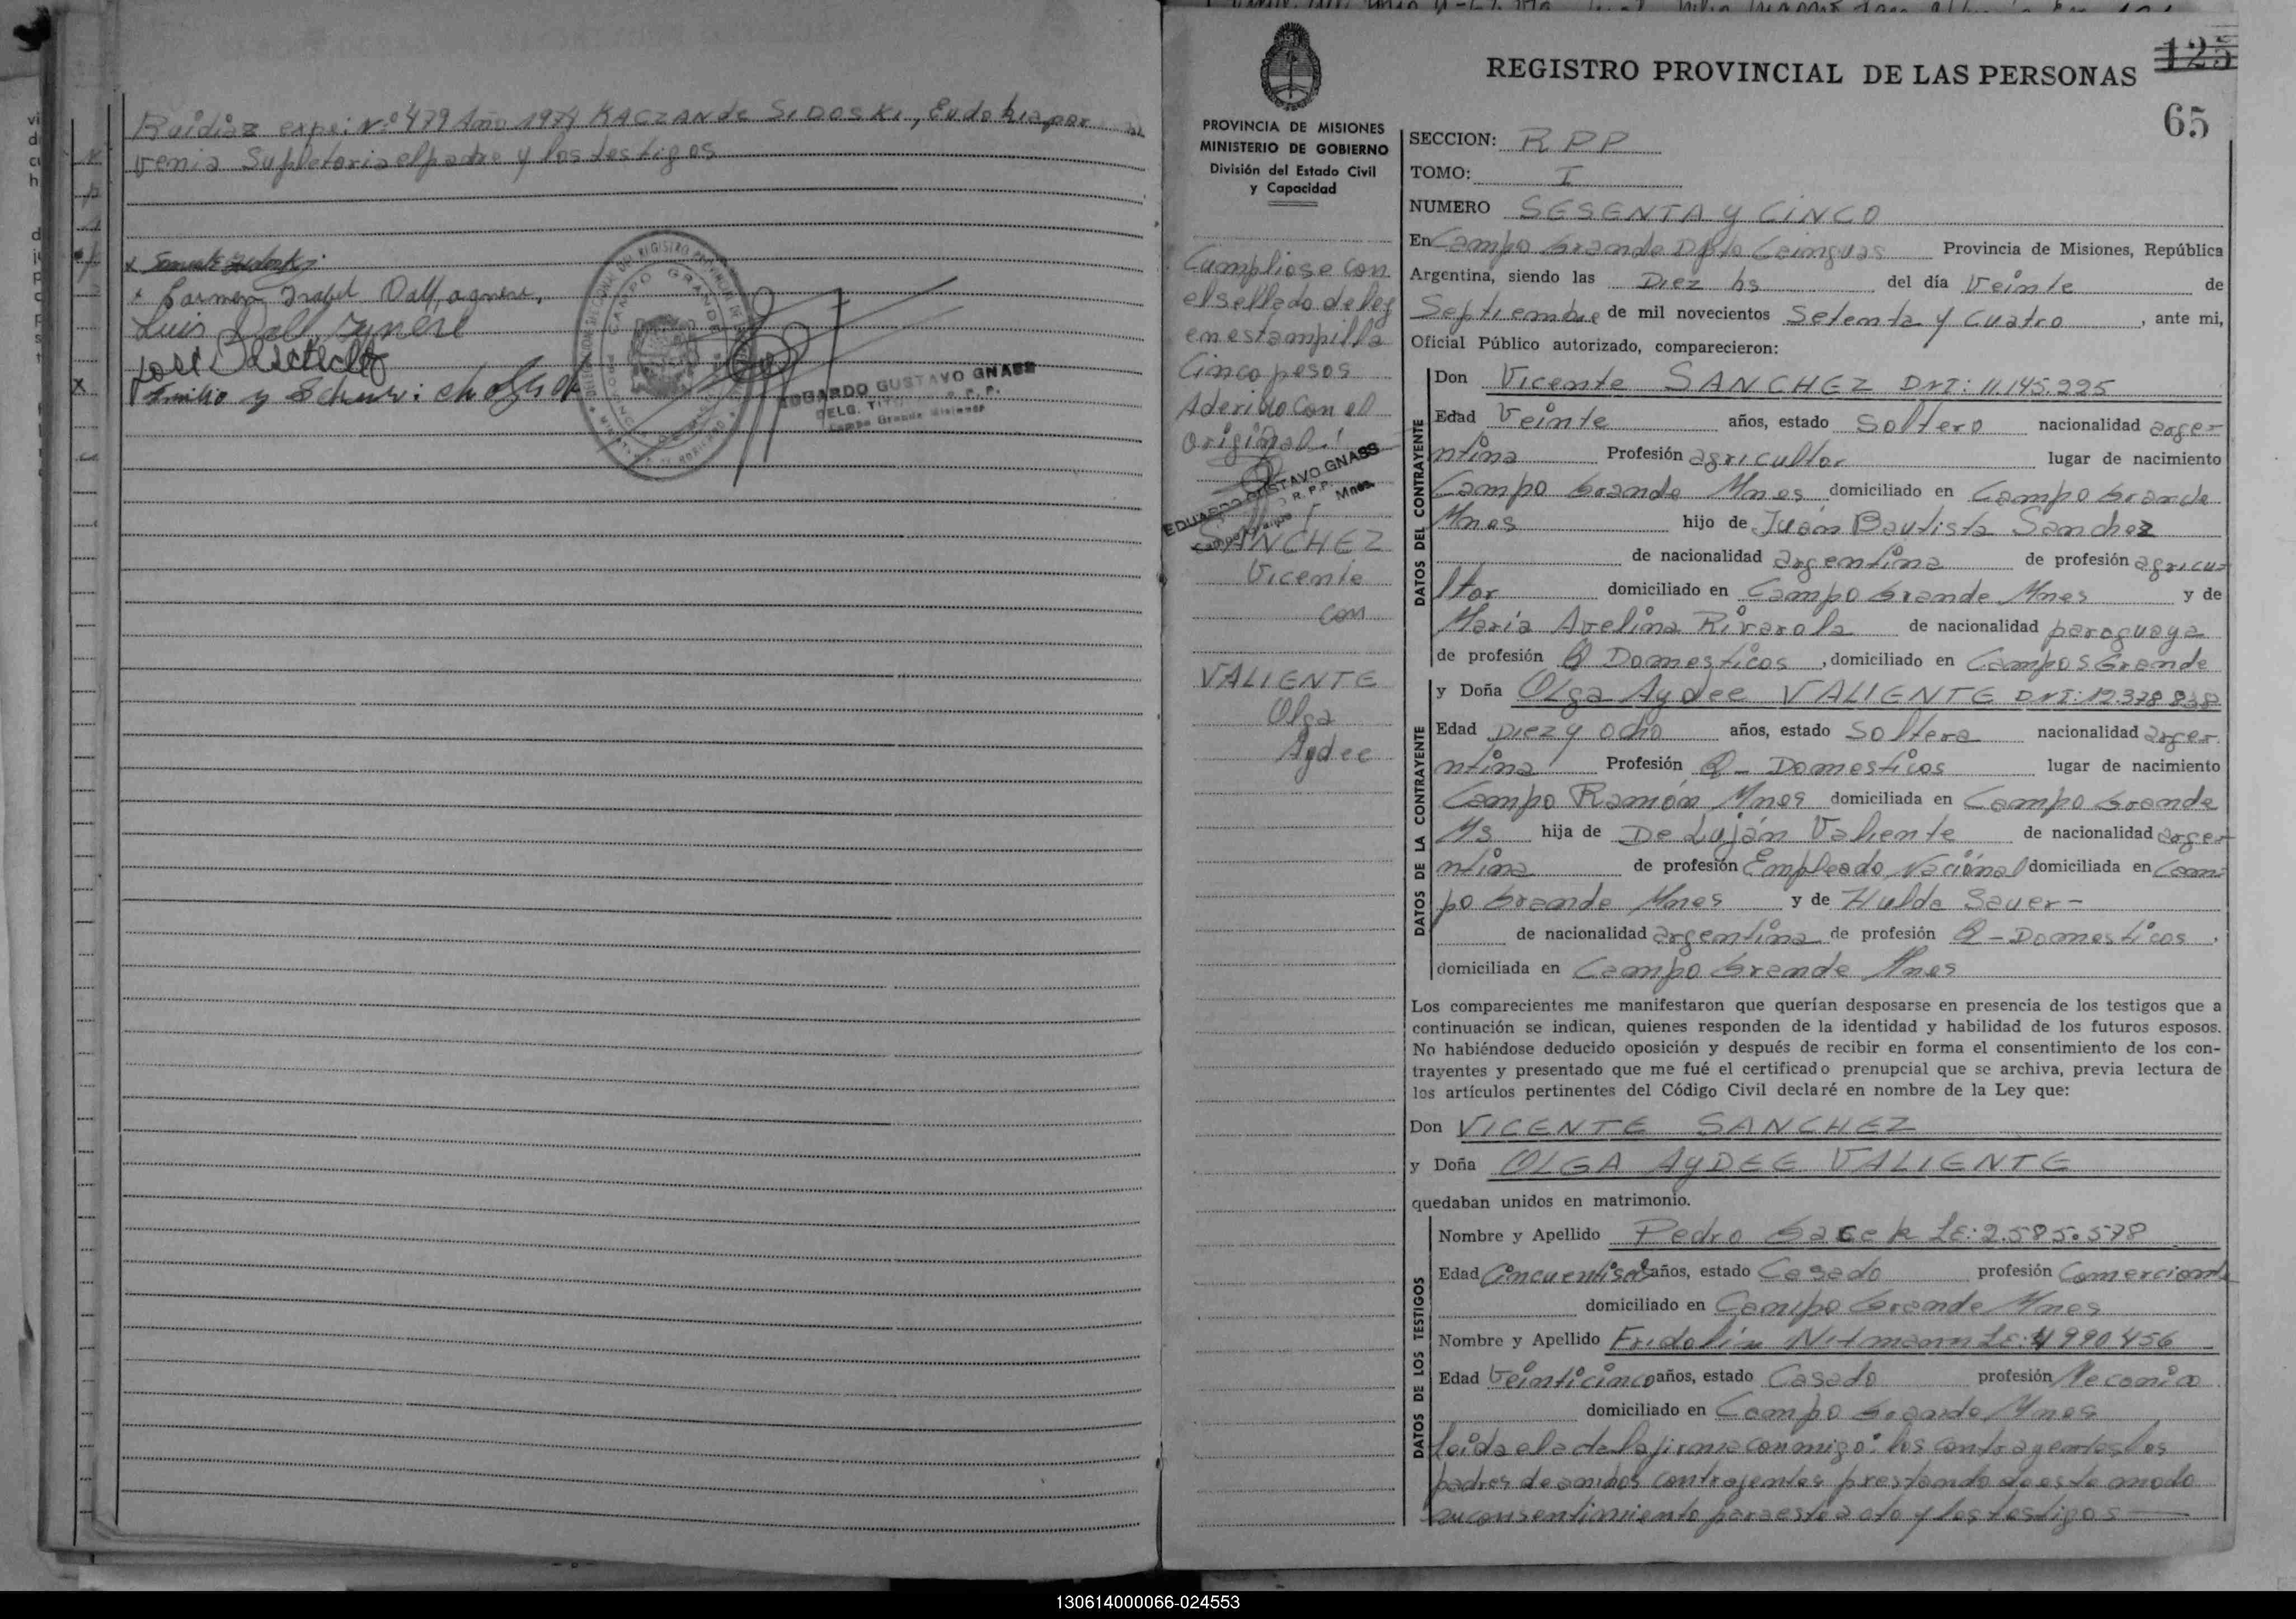 Ruidiaz expe: Nº 479 Año 1974 KACZAN de SIDOSKI, Eudohia por
venia Supletoria el padre y los testigos
Carmen Isabel Dall,agnese.
Luis Dall,agnese
José
Emilio y
CAMPO GRANDE
EDUARDO GUSTAVO GNASS
DELG. R. P. P.
Campo Grande Misiones
REGISTRO PROVINCIAL DE LAS PERSONAS
125
65
PROVINCIA DE MISIONES
MINISTERIO DE GOBIERNO
División del Estado Civil
y Capacidad
Cumpliose con
el sellado de ley
en estampilla
Cinco pesos
Aderido con el
original.
EDUARDO GUSTAVO GNASS
R. P. P.
Mnes.
SANCHEZ
Vicente
con
VALIENTE
Olga
Aydee
SECCION: RPP
TOMO: I
NUMERO SESENTA y CINCO
En Campo Grande Dpto Cainguas Provincia de Misiones, República
Argentina, siendo las Diez hs del día Veinte de
Septiembre de mil novecientos Setenta y Cuatro, ante mi,
Oficial Público autorizado, comparecieron:
DATOS DEL CONTRAYENTE
Don Vicente SANCHEZ DNI: 11.145.225
Edad Veinte años, estado Soltero nacionalidad arge-
ntina Profesión agricultor lugar de nacimiento
Campo Grande Mnes domiciliado en Campo Grande
Mnes hijo de Juan Bautista Sanchez
de nacionalidad argentina de profesión agricu-
ltor domiciliado en Campo Grande Mnes y de
María Avelina Rivarola de nacionalidad paraguaya
de profesión Q Domesticos, domiciliado en Campos Grande
DATOS DE LA CONTRAYENTE
y Doña Olga Aydee VALIENTE DNI: 12.378.838
Edad Diez y ocho años, estado Soltera nacionalidad arge-
ntina Profesión Q- Domesticos lugar de nacimiento
Campo Ramón Mnes domiciliada en Campo Grande
Ms hija de De Luján Valiente de nacionalidad arge-
ntina de profesión Empleado Nacional domiciliada en Cam-
po Grande Mnes y de Hulda Sauer-
de nacionalidad argentina de profesión Q-Domesticos.
domiciliada en Campo Grande Mnes
Los comparecientes me manifestaron que querían desposarse en presencia de los testigos que a
continuación se indican, quienes responden de la identidad y habilidad de los futuros esposos.
No habiéndose deducido oposición y después de recibir en forma el consentimiento de los con-
trayentes y presentado que me fué el certificado prenupcial que se archiva, previa lectura de
los artículos pertinentes del Código Civil declaré en nombre de la Ley que:
Don VICENTE SANCHEZ
y Doña OLGA AYDEE VALIENTE
quedaban unidos en matrimonio.
DATOS DE LOS TESTIGOS
Nombre y Apellido Pedro Gacek LE: 2.585.578
Edad años, estado Casado profesión Comerciante
domiciliado en Campo Grande Mnes
Nombre y Apellido Fridolin Nitmann LE: 4990456
Edad Veinticinco años, estado Casado profesión Mecanico
domiciliado en Campo Grande Mnes
leida el acta la firma conmigo: los contrayentes los
padres de ambos contrayentes prestando de este modo
su consentimiento para este acto y los testigos
130614000066-024553